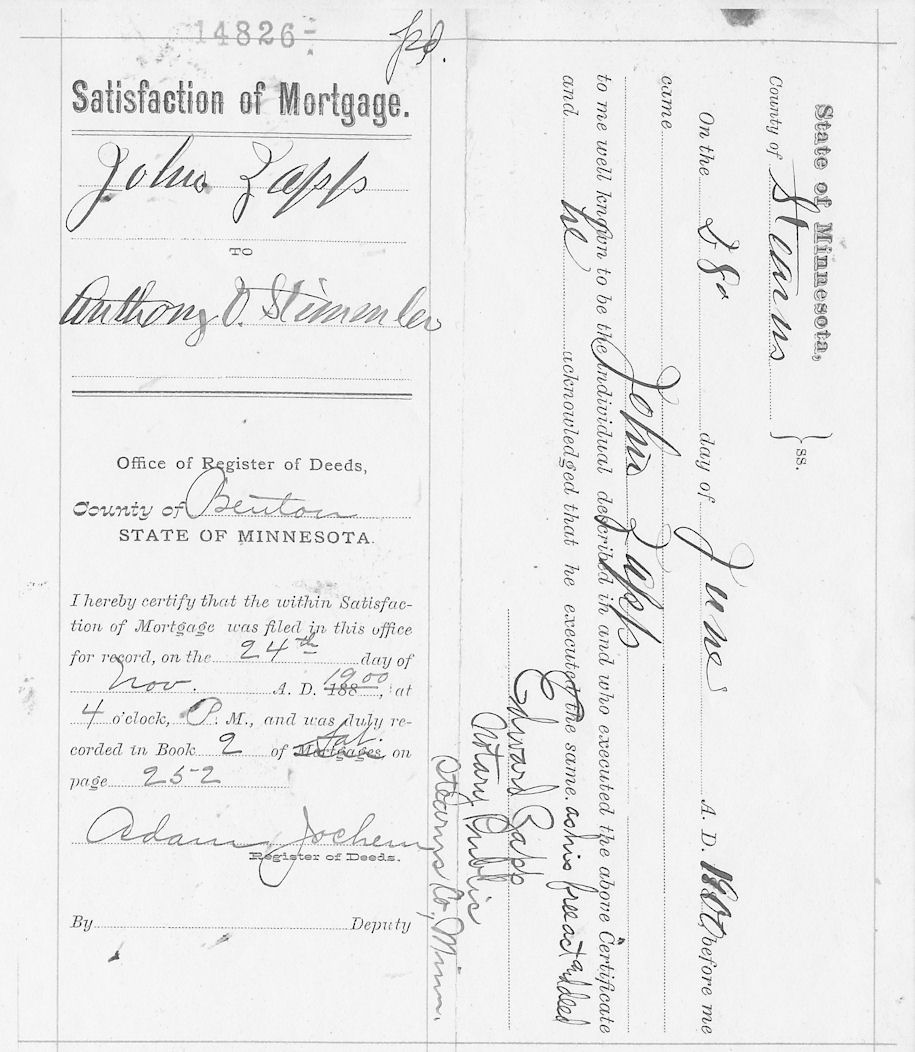 14826-
pd.
Satisfaction of Mortgage.
John Zapp
TO
Anthony O.
Office of Register of Deeds,
County of Benton
STATE OF MINNESOTA.
I hereby certify that the within Satisfac-
tion of Mortgage was filed in this office
for record, on the 24th day of
Nov. A. D. 188 1900, at
4 o'clock, P. M., and was duly re-
corded in Book 2 of Mortgages Sat. on
page 252
Adam Jochem
Register of Deeds.
By Deputy
State of Minnesota,
County of Stearns } ss.
On the 28" day of June A. D. 1900, before me
came John Zapp
to me well known to be the individual described in and who executed the above Certificate
and he acknowledged that he executed the same. as his free act and deed
Edward Zapp
Notary Public
Stearns Co, Minn.